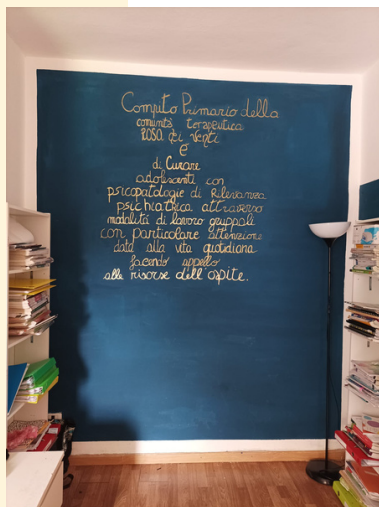 Compito Primario della
comunità terapeutica
ROSA dei venti
È
di Curare
adolescenti con
psicopatologie di Rilevanza
psichiatrica attraverso
modalità di lavoro gruppali
con particolare attenzione
data alla vita quotidiana
facendo appello
alle risorse dell'ospite.